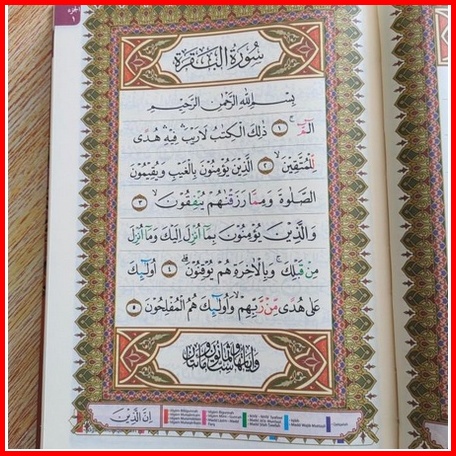 سُورَةُ الْبَقَرَةِ
بِسْمِ اللهِ الرَّحْمٰنِ الرَّحِيْمِ
الۤمّۤ ۚ ۝١ ذٰلِكَ الْكِتٰبُ لَارَيْبَ ۛ فِيْهِ ۛ هُدًى
لِّلْمُتَّقِيْنَ ۙ ۝٢ الَّذِيْنَ يُؤْمِنُوْنَ بِالْغَيْبِ وَيُقِيْمُوْنَ
الصَّلٰوةَ وَمِمَّا رَزَقْنٰهُمْ يُنْفِقُوْنَ ۙ ۝٣
وَالَّذِيْنَ يُؤْمِنُوْنَ بِمَآ اُنْزِلَ اِلَيْكَ وَمَآ اُنْزِلَ
مِنْ قَبْلِكَ ۚ وَبِالْاٰخِرَةِ هُمْ يُوْقِنُوْنَ ۗ ۝٤ اُولٰۤىِٕكَ
عَلٰى هُدًى مِّنْ رَّبِّهِمْ ۙ وَاُولٰۤىِٕكَ هُمُ الْمُفْلِحُوْنَ ۝٥
اِنَّ الَّذِيْنَ